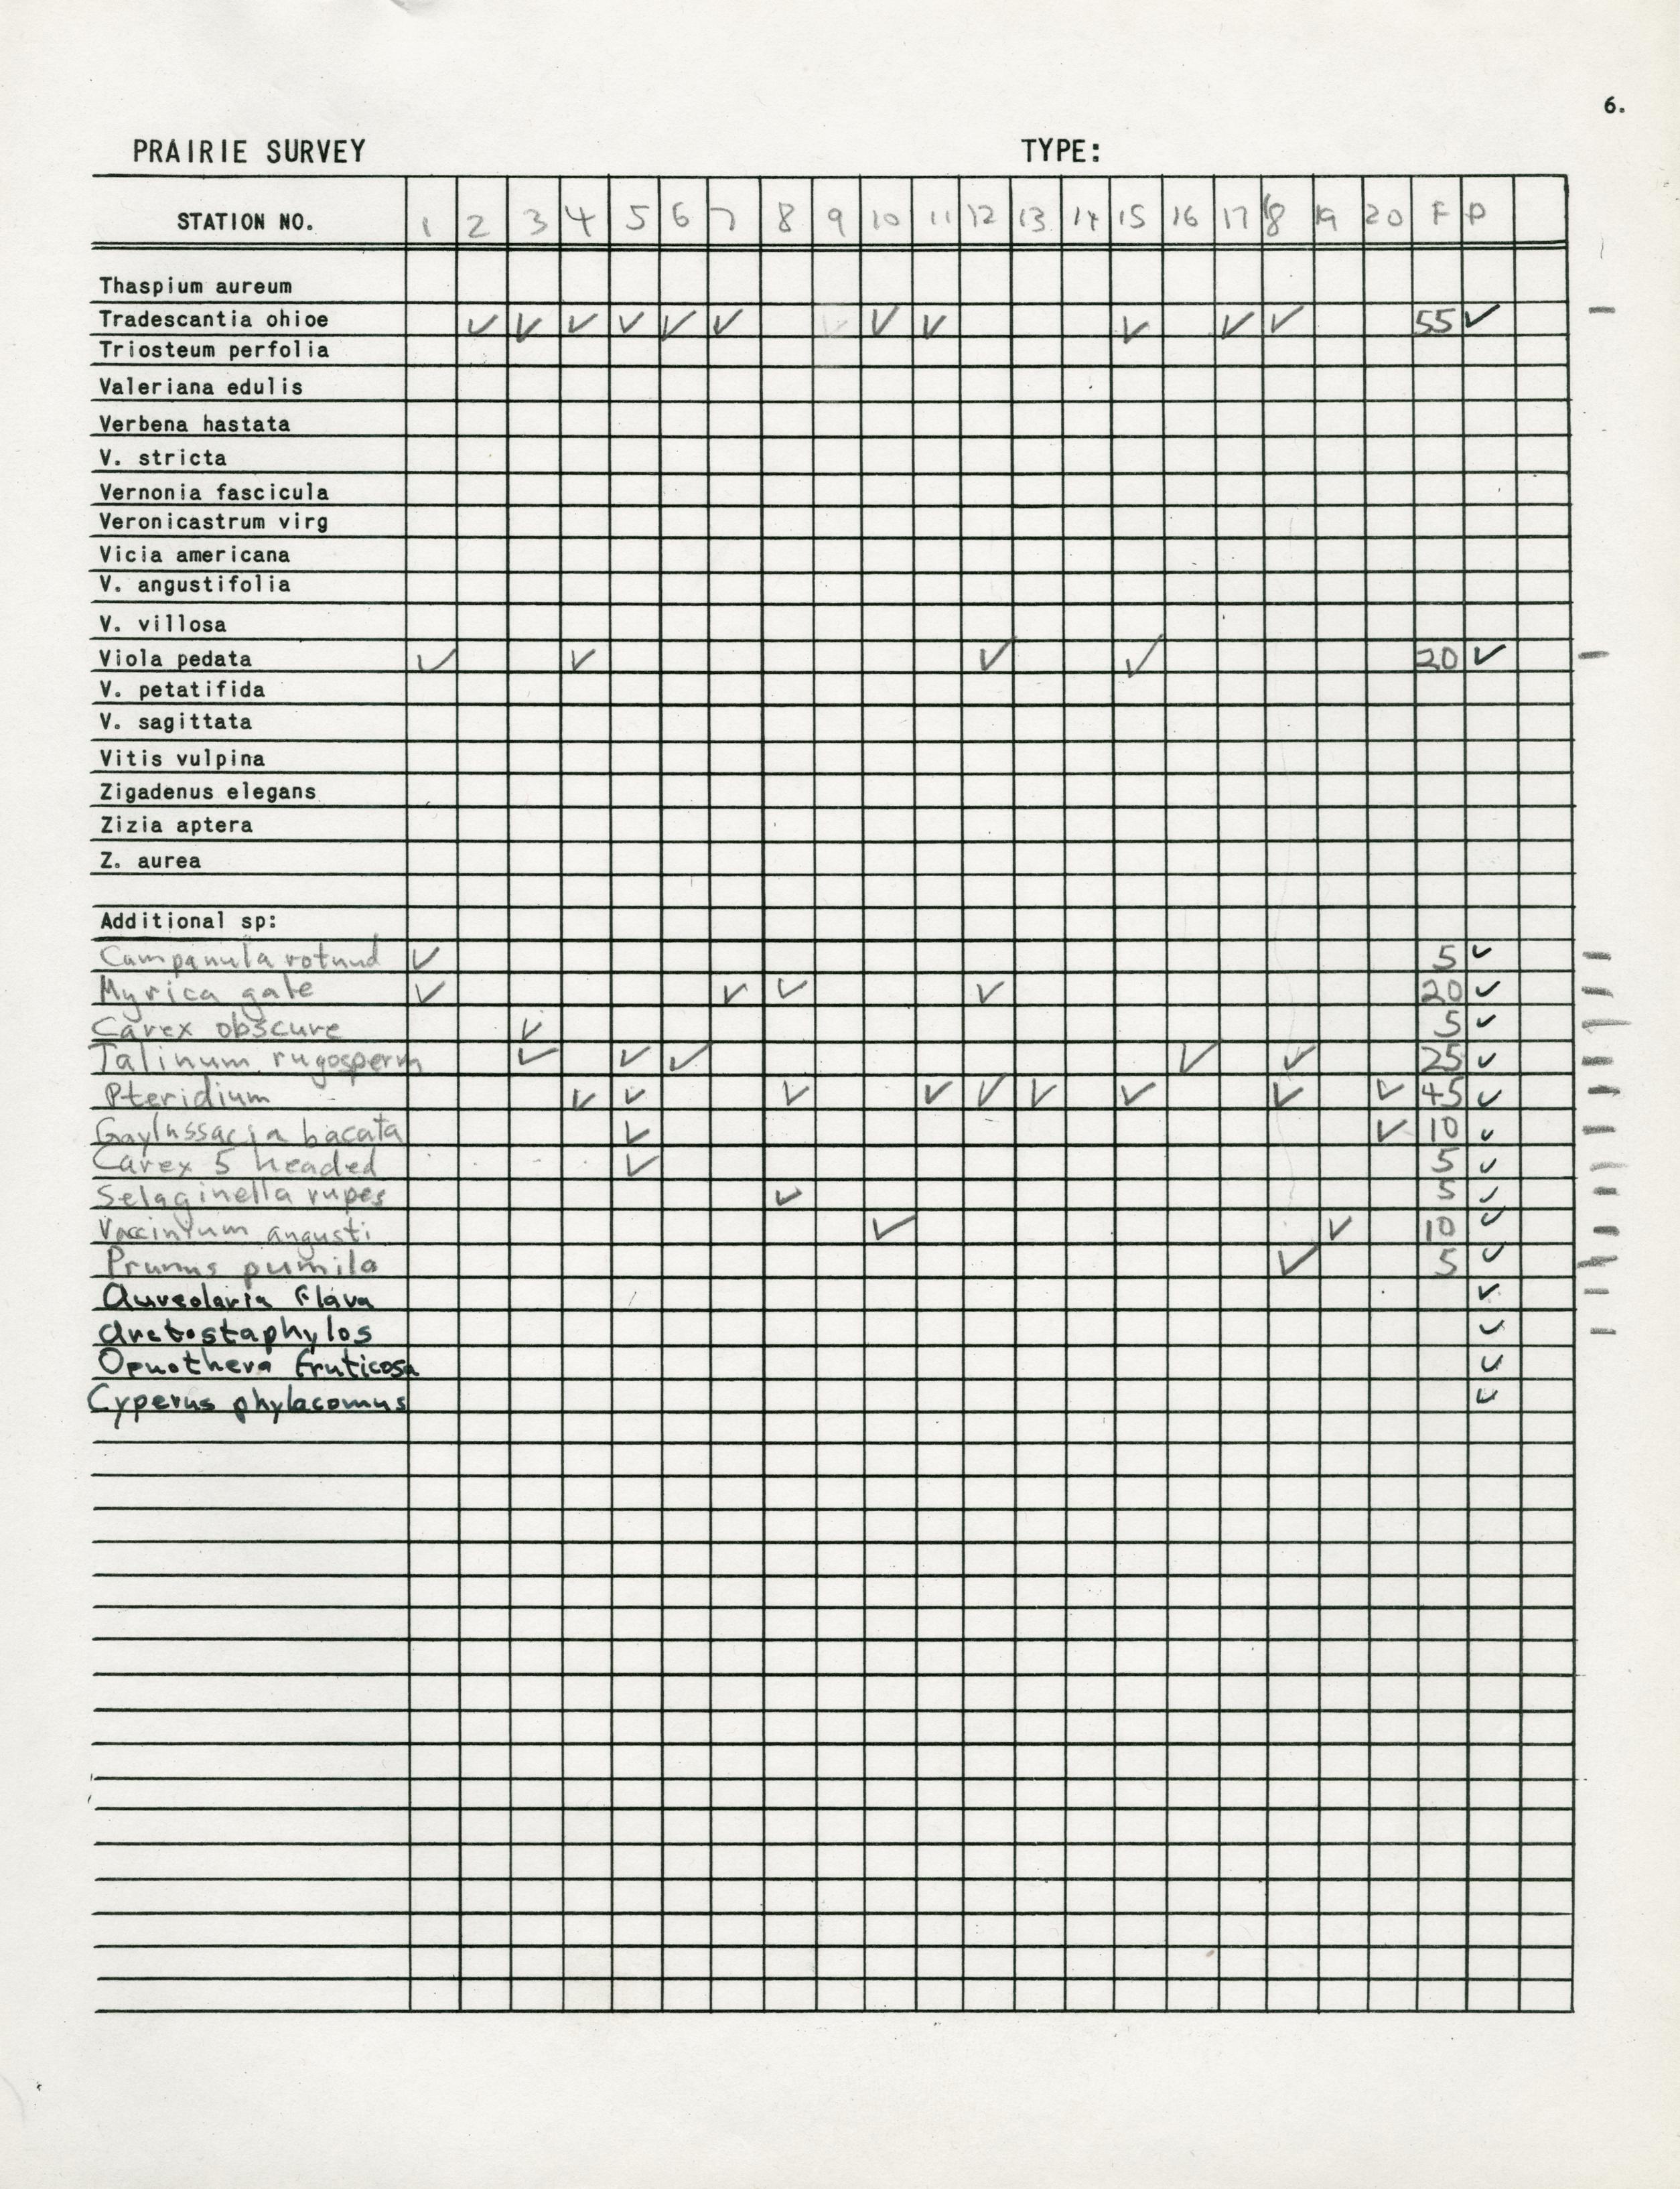 6.
PRAIRIE SURVEY TYPE:
STATION NO. 1 2 3 4 5 6 7 8 9 10 11 12 13 14 15 16 17 18 19 20 F P
Thaspium aureum
Tradescantia ohioe ✓ ✓ ✓ ✓ ✓ ✓ ✓ ✓ ✓ ✓ ✓ 55 ✓
Triosteum perfolia
Valeriana edulis
Verbena hastata
V. stricta
Vernonia fascicula
Veronicastrum virg
Vicia americana
V. angustifolia
V. villosa
Viola pedata ✓ ✓ ✓ ✓ 20 ✓
V. petatifida
V. sagittata
Vitis vulpina
Zigadenus elegans
Zizia aptera
Z. aurea
Additional sp:
Campanula rotund ✓ 5 ✓
Myrica gale ✓ ✓ ✓ ✓ 20 ✓
Carex obscure ✓ 5 ✓
Talinum rugosperm ✓ ✓ ✓ ✓ ✓ 25 ✓
Pteridium ✓ ✓ ✓ ✓ ✓ ✓ ✓ ✓ ✓ 45 ✓
Gaylussacia bacata ✓ ✓ 10 ✓
Carex 5 headed ✓ 5 ✓
Selaginella rupes ✓ 5 ✓
Vaccinium angusti ✓ ✓ 10 ✓
Prunus pumila ✓ 5 ✓
Aureolaria flava ✓
Arctostaphylos ✓
Oenothera fruticosa ✓
Cyperus phylacomus ✓